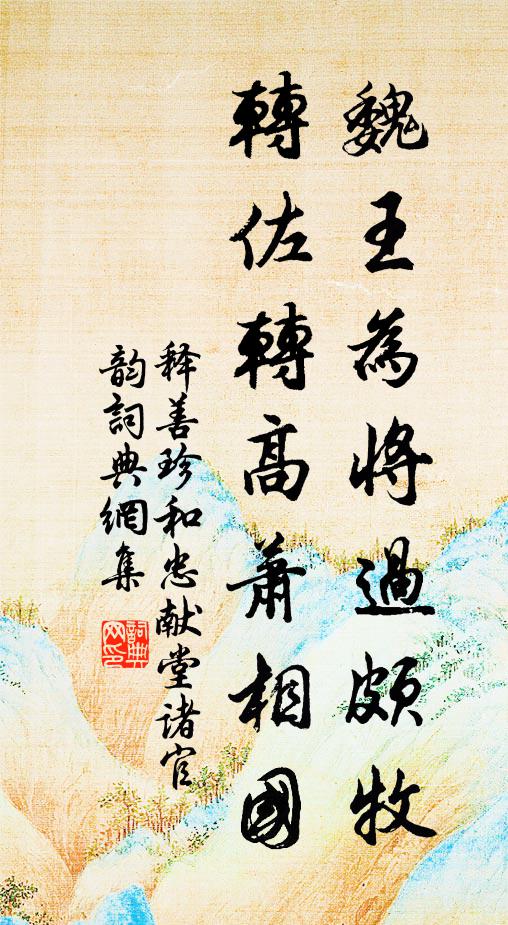 魏王為將過頗牧
轉佐轉高蕭相國
释善珍和忠献堂诸官
韵詞典網集
詞典網印